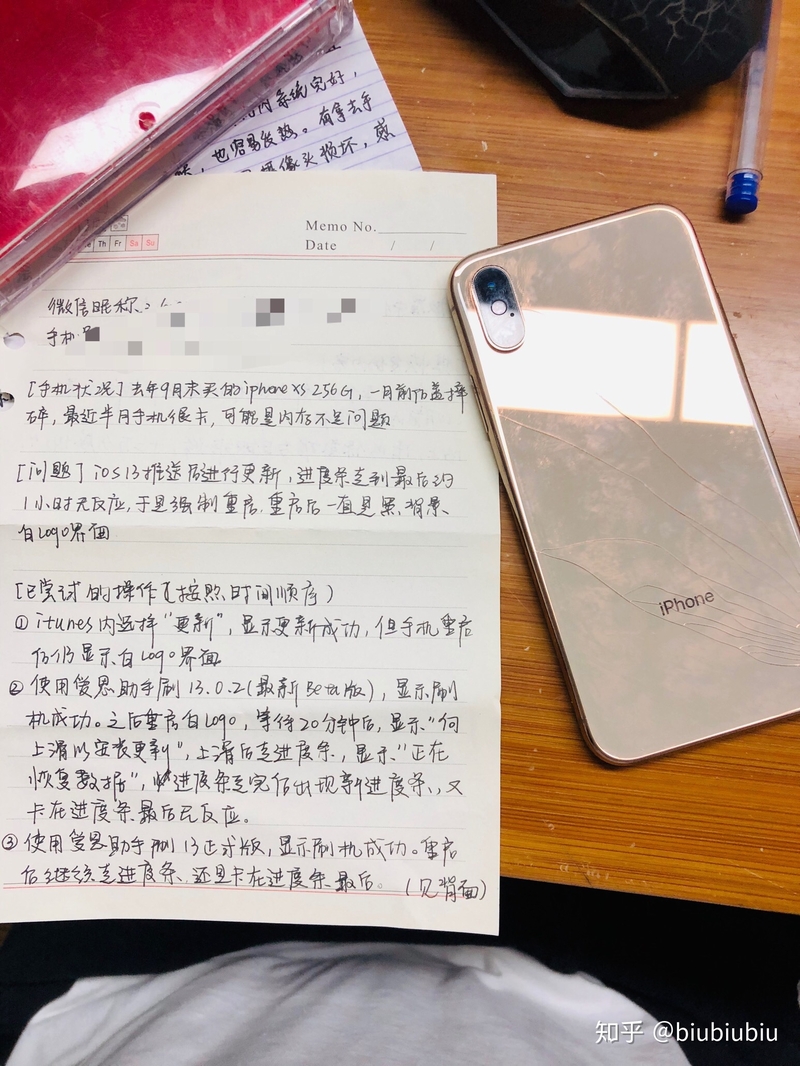 内系统完好，
也容易发热。有拿去手
摄像头损坏，感
Memo No.
Date / /
Th Fr Sa Su
微信昵称：
手机号
[手机状况] 去年9月末买的iphone xs 256G，一月前后盖摔
碎，最近半月手机很卡，可能是内存不足问题
[问题] iOS 13推送后进行更新，进度条走到最后约
1小时无反应，于是强制重启，重启后一直是黑背景
白logo界面
[已尝试的操作](按照时间顺序)
① itunes内选择“更新”，显示更新成功，但手机重启
后仍显示白logo界面
② 使用爱思助手刷 13.0.2(最新Beta版)，显示刷
机成功。之后重启白logo，等待20分钟后，显示“向
上滑以安装更新”，上滑后走进度条，显示“正在
恢复数据”，进度条走完后出现新进度条，又
卡在进度条最后无反应。
③ 使用爱思助手刷 13正式版，显示刷机成功。重启
后继续走进度条，还是卡在进度条最后。(见背面)
iPhone
知乎 @biubiubiu